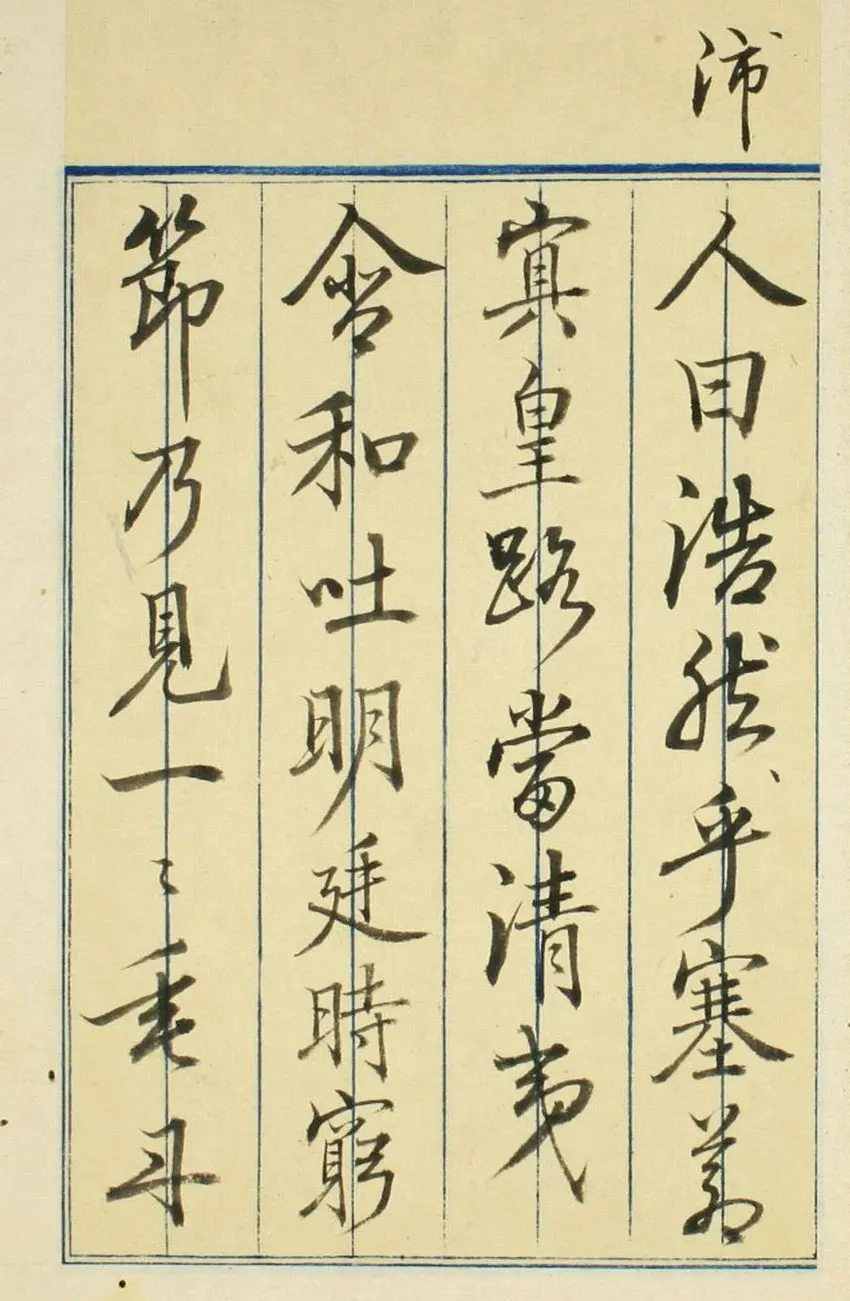 沛
人曰浩然乎塞蒼
冥皇路當清夷
含和吐明廷時窮
節乃見一〻垂丹